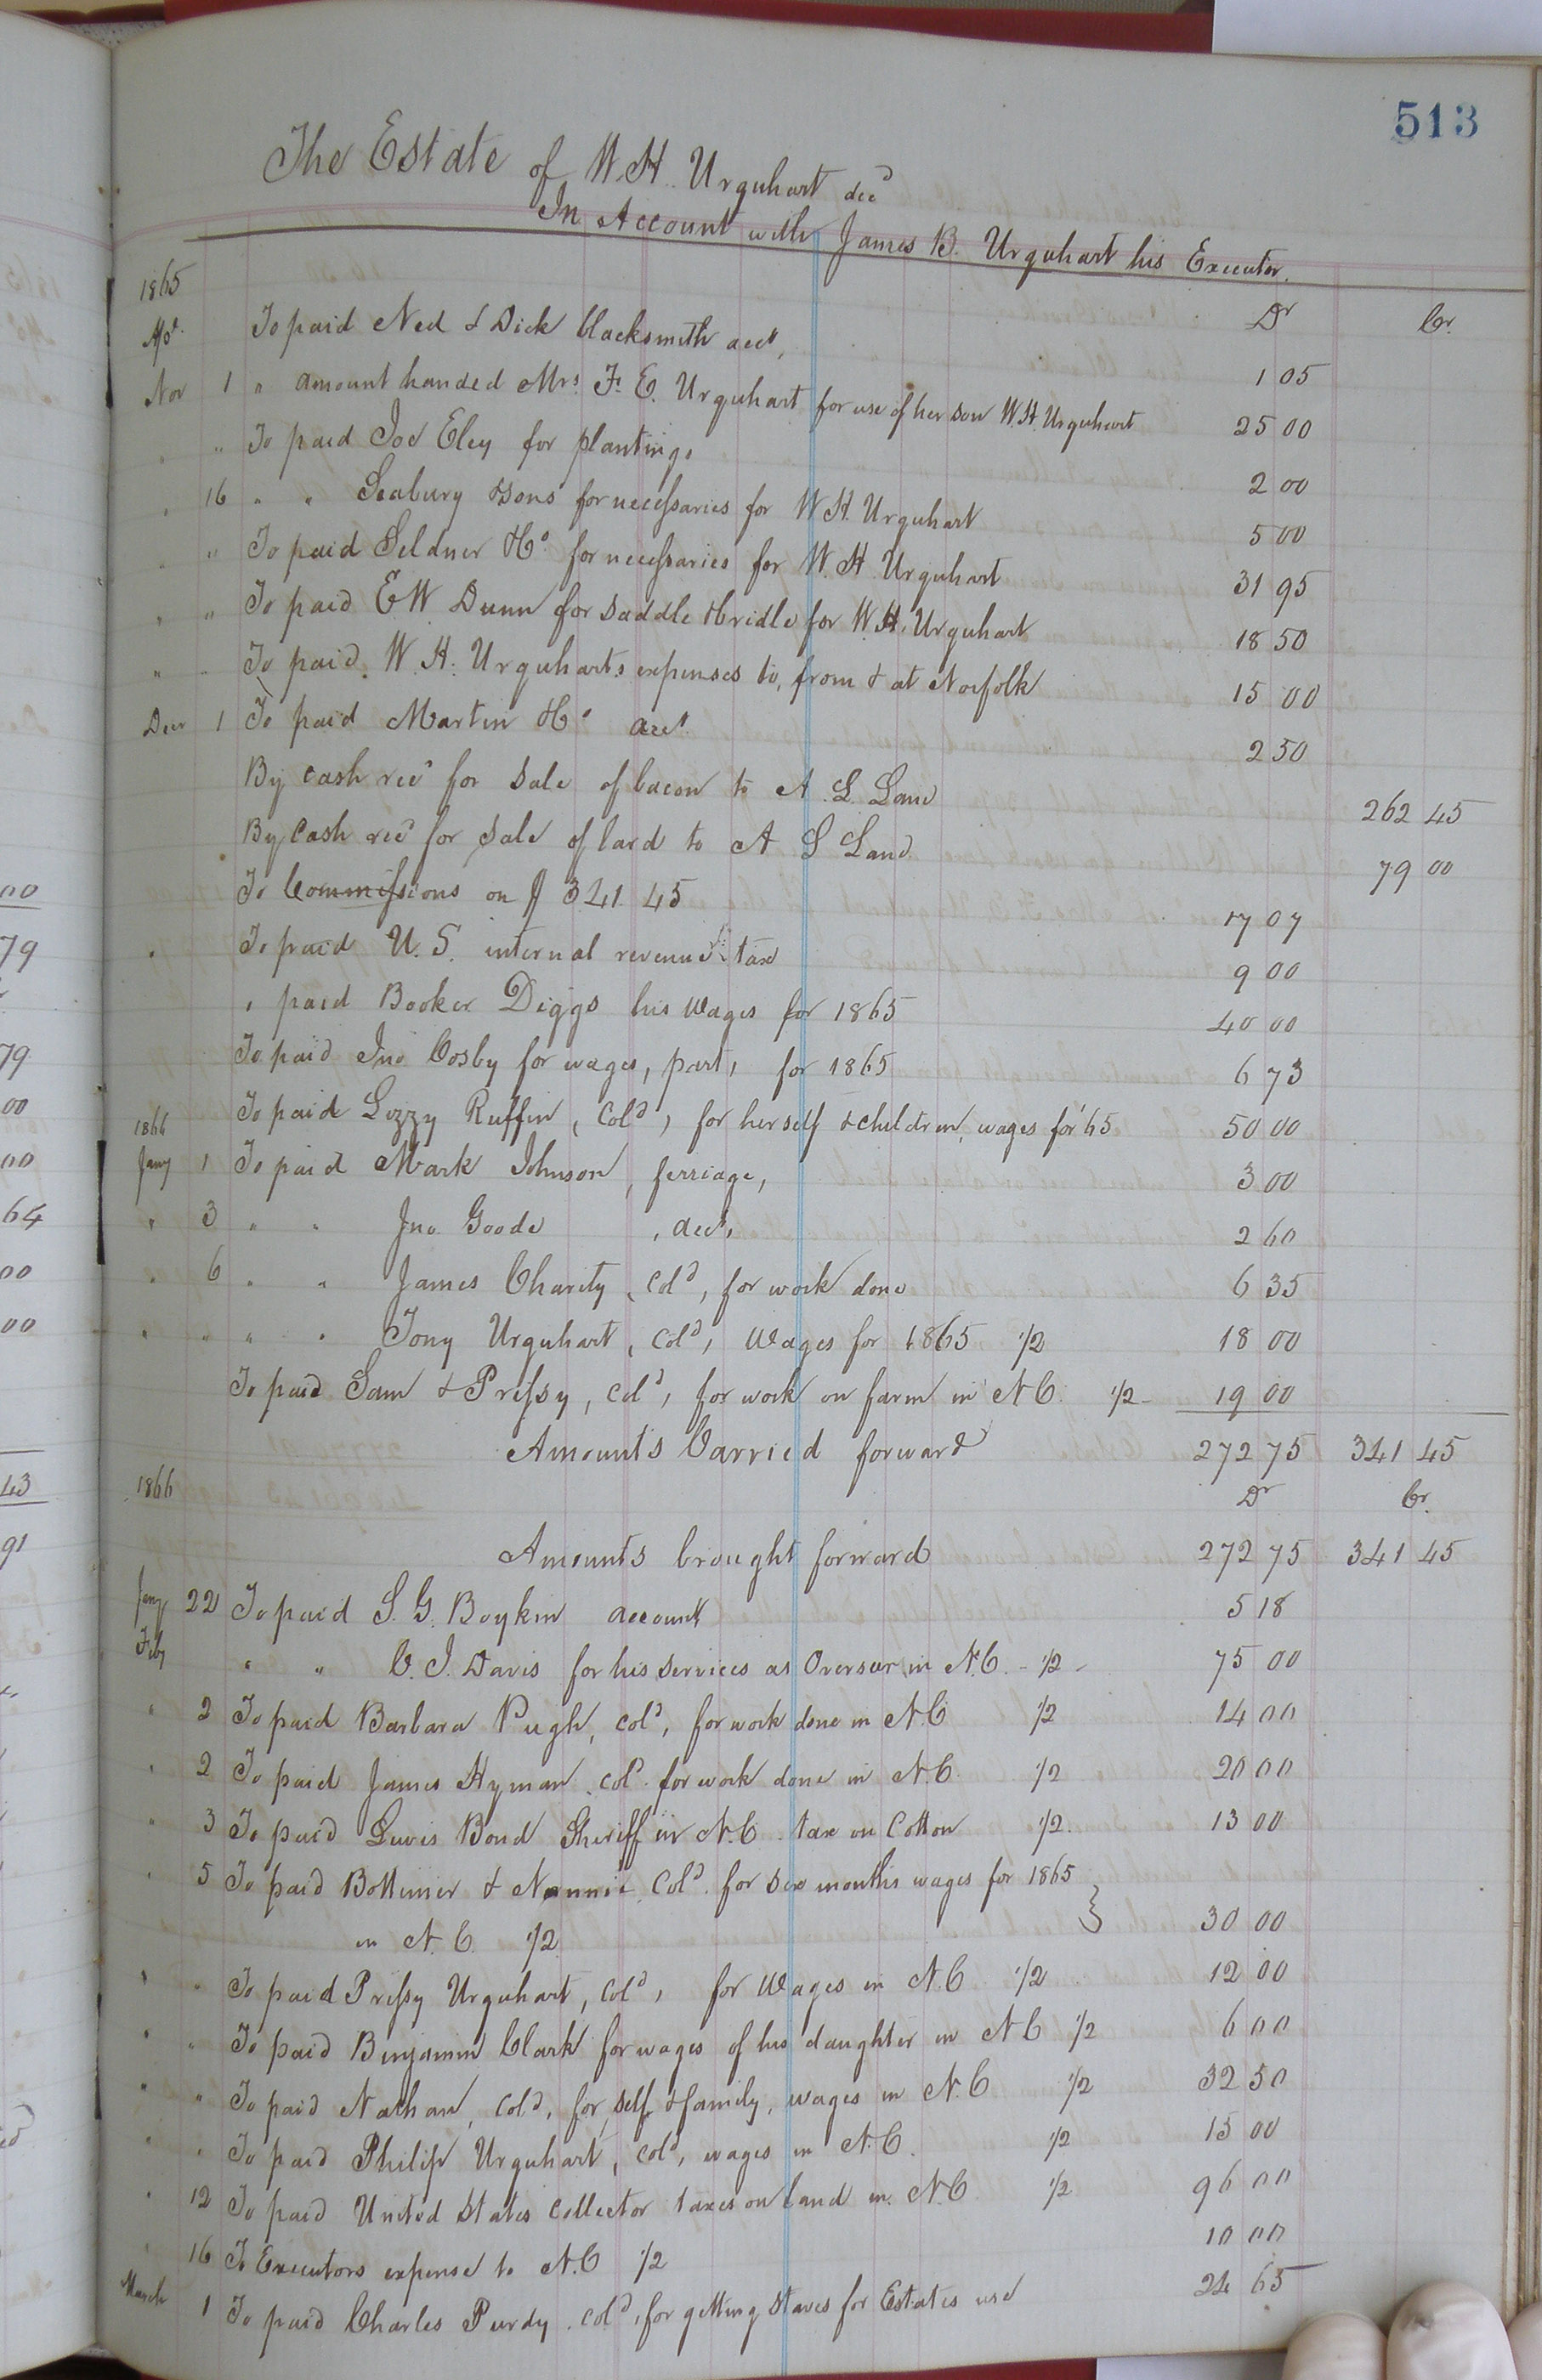 513
The Estate of W.H. Urquhart decd
In Account with James B. Urquhart his Executor.
1865 Dr Cr.
To paid Ned & Dick blacksmith acct, 1 05
Nov 1 " amount handed Mrs. F. E. Urquhart for use of her son W.H. Urquhart 25 00
" " To paid Joe Eley for planting, 2 00
" 16 " " Seabury & Sons for necessaries for W H. Urquhart 5 00
" " To paid Seldner & Co for necessaries for W. H. Urquhart 31 95
" " To paid E W Dunn for saddle & bridle for W. H. Urquhart 18 50
" " To paid W. H. Urquharts expenses to, from & at Norfolk 15 00
Decr 1 To paid Martin & Co acct. 2 50
By cash recd for sale of bacon to A. L. Land 262 45
By cash recd for sale of lard to A L Land 79 00
To Commissions on $ 341. 45 17 07
" To paid U. S. internal revenue tax 9 00
" paid Booker Diggs his wages for 1865 40 00
To paid Jno Cosby for wages, part, for 1865 6 73
To paid Lizzy Ruffin, Cold, for herself & children, wages for '65 50 00
1866
Jany 1 To paid Mark Johnson, ferriage, 3 00
" 3 " " Jno. Goode, acct, 2 60
" 6 " " James Charity, Cold, for work done 6 35
" " " " Tony Urquhart, Cold, wages for 1865 1/2 18 00
To paid Sam & Prissy, Cold, for work on farm in N C. 1/2 19 00
Amounts Carried forward 272 75 341 45
1866 Dr Cr.
Amounts brought forward 272 75 341 45
Jany 22 To paid S. G. Boykin account 5 18
Feby " " C. J. Davis for his services as Overseer in N.C. - 1/2 - 75 00
" 2 To paid Barbara Pugh, cold, for work done in N.C 1/2 14 00
" 2 To paid James Hyman, cold. for work done in N.C. 1/2 20 00
" 3 To paid Lewis Bond Sheriff in N.C. tax on Cotton 1/2. 13 00
" 5 To paid Bottimier & Nannie Cold. for six months wages for 1865
in N. C. 1/2 30 00
" " To paid Prissy Urquhart, Cold, for wages in N.C 1/2 12 00
" " To paid Benjamin Clark for wages of his daughter in N C 1/2 6 00
" " To paid Nathan, cold, for self & family, wages in N.C 1/2 32 50
" " To paid Philip Urquhart, cold, wages in N.C. 1/2 15 00
" 12 To paid United States collector taxes on land in N.C 1/2 96 00
" 16 To Executors expense to N.C 1/2 10 00
March 1 To paid Charles Purdy, cold, for getting staves for Estates use 24 65
00
79
79
00
00
64
00
00
43
91